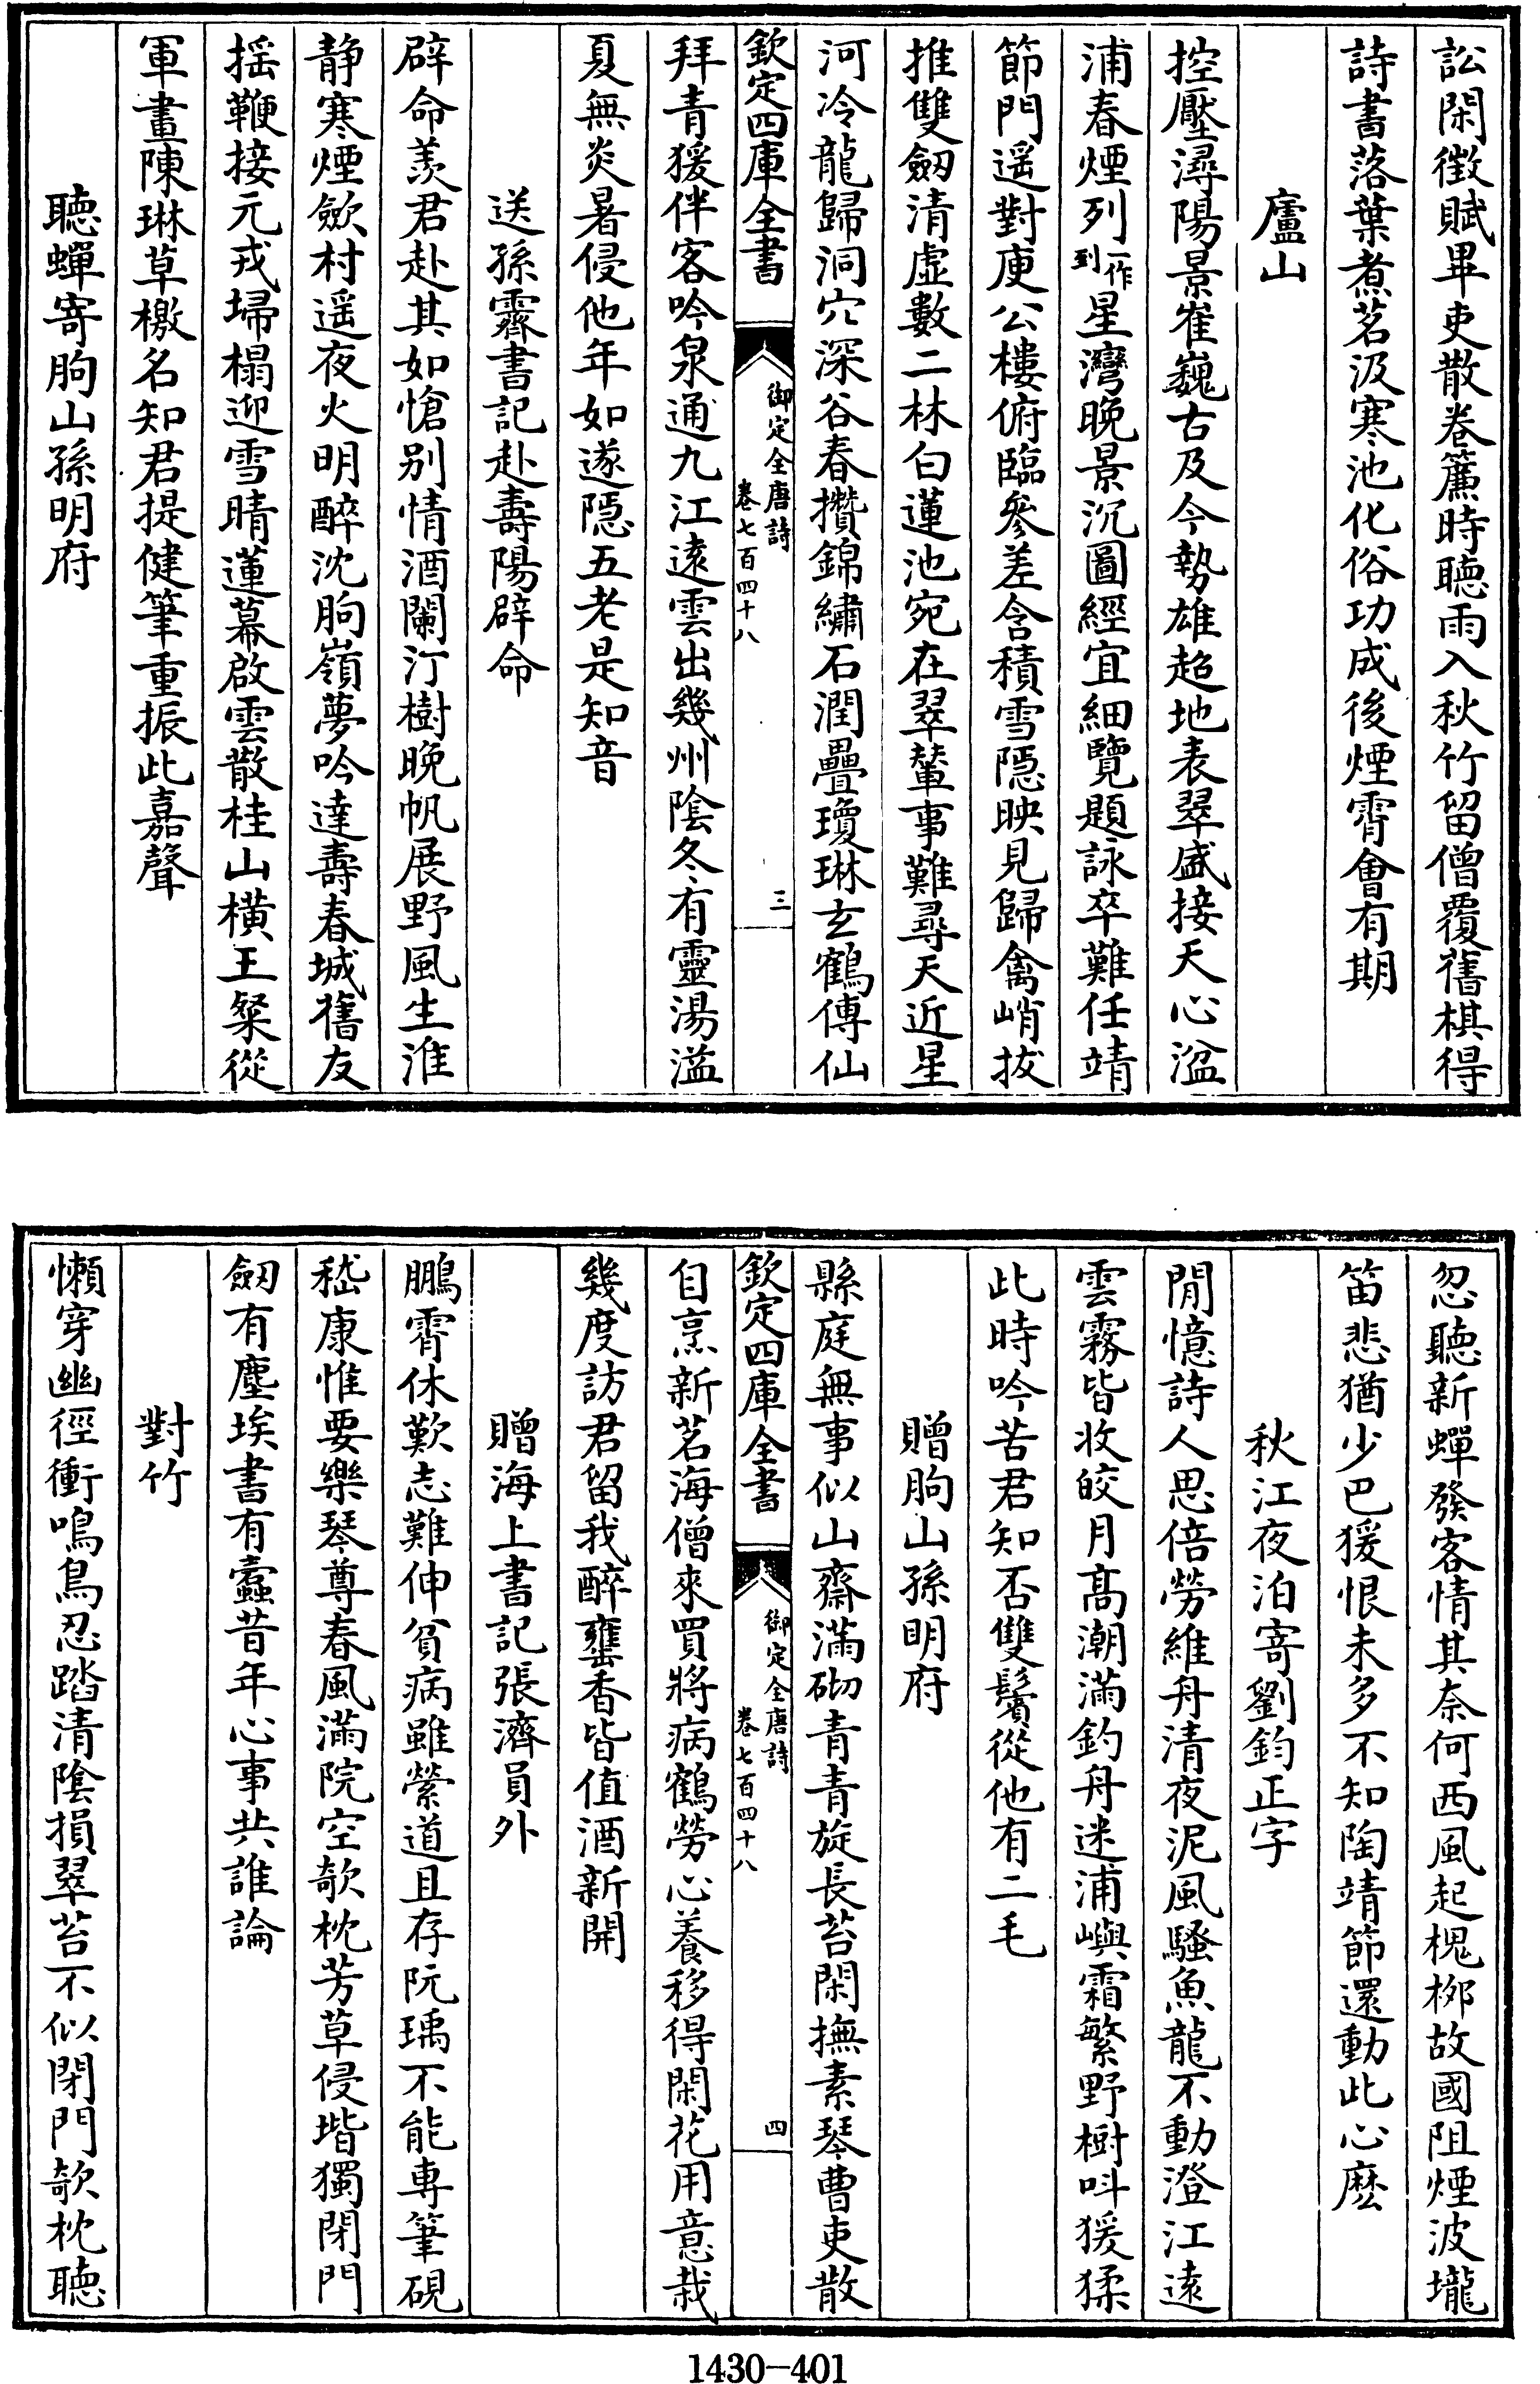 訟閑徴賦畢吏散卷簾時聽雨入秋竹留僧覆舊棋得
詩書落葉煮茗汲寒池化俗功成後煙霄會有期
廬山
控壓潯陽景崔巍古及今勢雄超地表翠盛接天心湓
浦春煙列一作到星灣晚景沉圖經宜細覽題詠卒難任靖
節門遥對庾公樓俯臨參差含積雪隱映見歸禽峭拔
推雙劒清虚數二林白蓮池宛在翠輦事難尋天近星
河冷龍歸洞穴深谷春攢錦繡石潤疊瓊琳玄鶴傳仙
欽定四庫全書
御定全唐詩
卷七百四十八
三
拜青猨伴客吟泉通九江遠雲出幾州陰冬有靈湯溢
夏無炎暑侵他年如遂隱五老是知音
送孫霽書記赴壽陽辟命
辟命羨君赴其如愴别情酒闌汀樹晚帆展野風生淮
静寒煙歛村遥夜火明醉沈朐嶺夢吟達壽春城舊友
摇鞭接元戎埽榻迎雪晴蓮幕啟雲散桂山横王粲從
軍畫陳琳草檄名知君提健筆重振此嘉聲
聽蟬寄朐山孫明府
忽聽新蟬發客情其奈何西風起槐栁故國阻煙波壠
笛悲猶少巴猨恨未多不知陶靖節還動此心麽
秋江夜泊寄劉鈞正字
閒憶詩人思倍勞維舟清夜泥風騷魚龍不動澄江遠
雲霧皆收皎月髙潮滿釣舟迷浦嶼霜繁野樹呌猨猱
此時吟苦君知否雙鬢從他有二毛
贈朐山孫明府
縣庭無事似山齋滿砌青青旋長苔閑撫素琴曹吏散
欽定四庫全書
御定全唐詩
卷七百四十八
四
自烹新茗海僧來買將病鶴勞心養移得閑花用意栽
幾度訪君留我醉甕香皆值酒新開
贈海上書記張濟員外
鵬霄休歎志難伸貧病雖縈道且存阮瑀不能専筆硯
嵇康惟要樂琴尊春風滿院空欹枕芳草侵堦獨閉門
劒有塵埃書有蠧昔年心事共誰論
對竹
懶穿幽徑衝鳴鳥忍踏清陰損翠苔不似閉門欹枕聽
1430-401